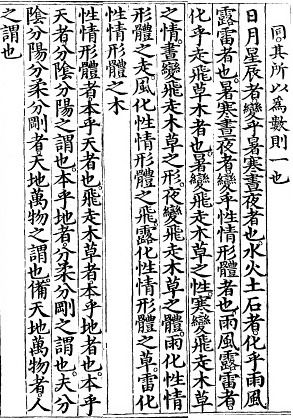 同其所以為數則一也
日月星辰者變乎暑寒晝夜者也水火土石者化乎雨風
露雷者也暑寒晝夜者變乎性情形體者也雨風露雷者
化乎走飛草木者也暑變飛走木草之性寒變飛走木草
之情晝變飛走木草之形夜變飛走木草之體雨化性情
形體之走風化性情形體之飛露化性情形體之草雷化
性情形體之木
性情形體者本乎天者也飛走木草者本乎地者也本乎
天者分陰分陽之謂也本乎地者分柔分剛之謂也夫分
陰分陽分柔分剛者天地萬物之謂也備天地萬物者人
之謂也